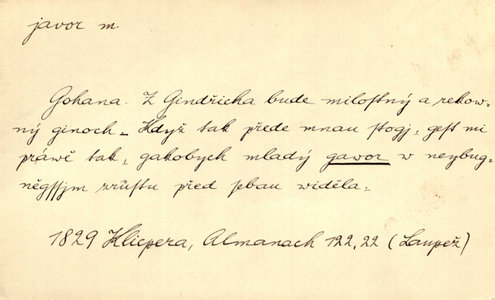 javor m.
Gohana. Z Gindřicha bude milostný a rekow-
ný ginoch – Když tak přede mnau stogj, gest mi
práwě tak, gakobych mladý gawor w neybug-
něgssjm zrůstu před sebau widěla.
1829 Klicpera, Almanach 122, 22 (Laupež)